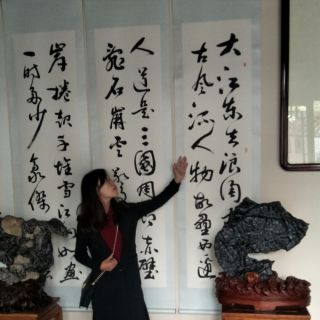 大江东去浪淘
古风流人物故壘西邊
人道是三國周郎赤壁
亂石崩雲驚
岸捲起千堆雪江山如畫
一時多少豪傑